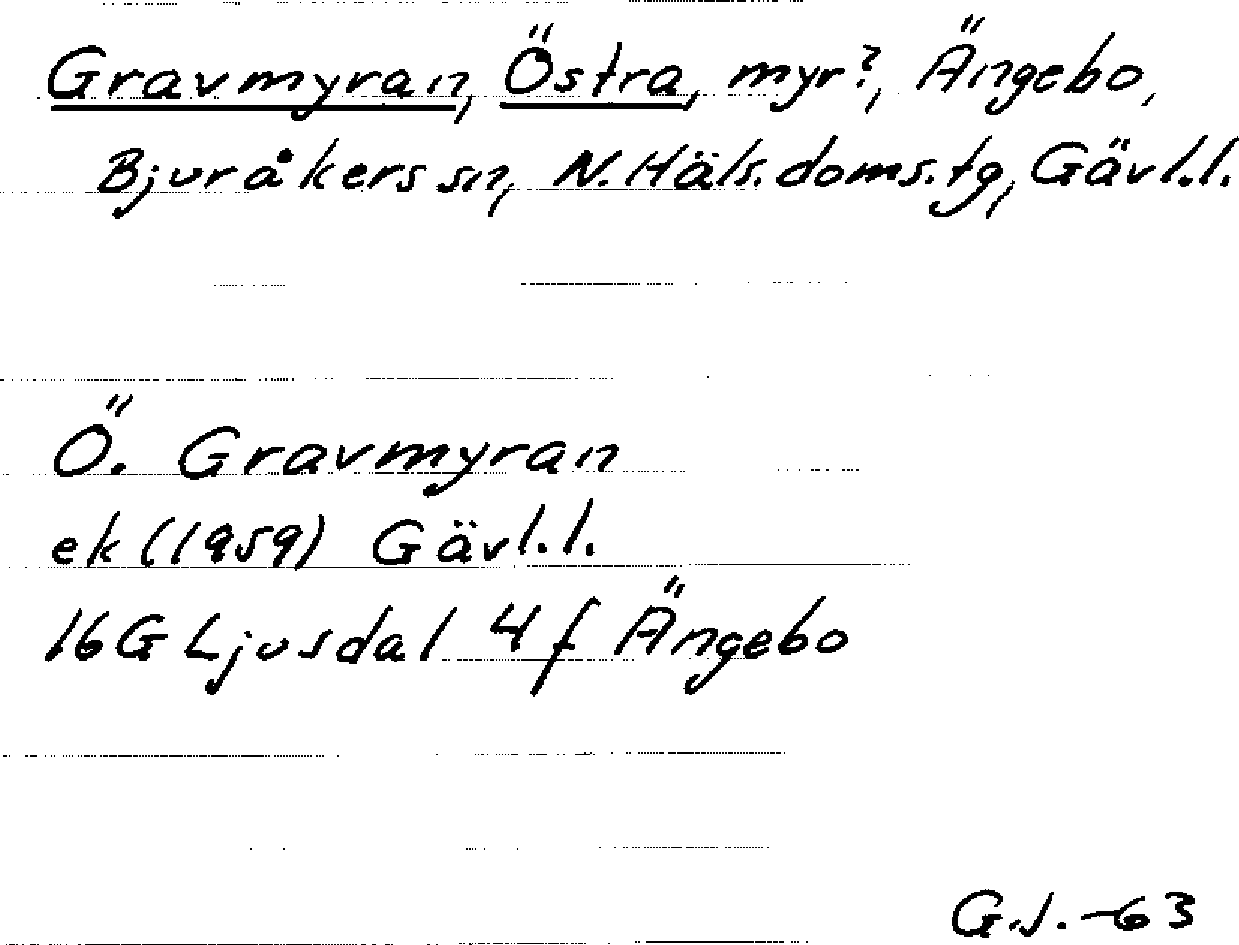 Gravmyran, Östra, myr?, Ängebo,
Bjuråkers sn, N. Häls. doms. tg, Gävl.l.
Ö. Gravmyran
ek (1959) Gävl.l.
16G Ljusdal 4f Ängebo
G.J. -63